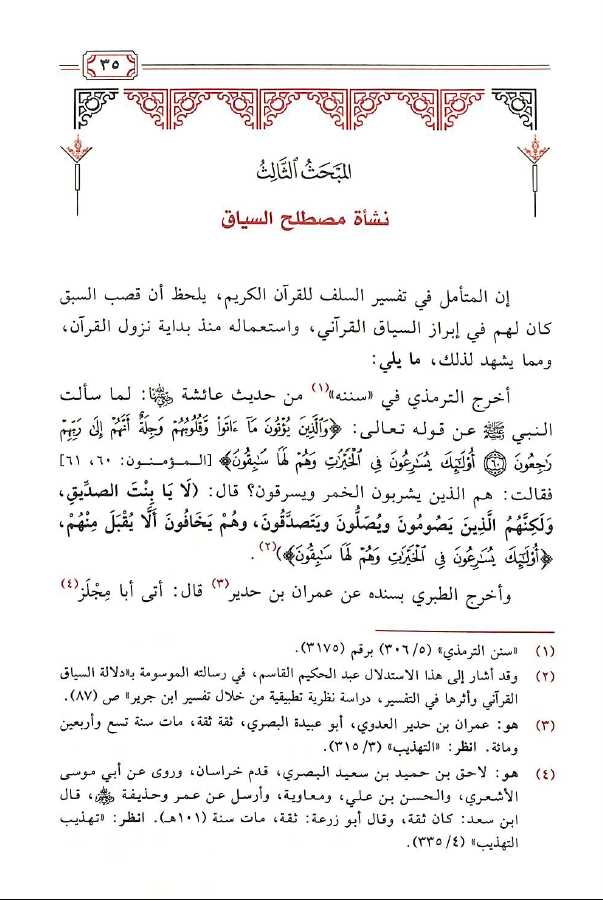 ٣٥
المبحث الثالث
نشأة مصطلح السياق
إن المتأمل في تفسير السلف للقرآن الكريم، يلحظ أن قصب السبق
كان لهم في إبراز السياق القرآني، واستعماله منذ بداية نزول القرآن،
ومما يشهد لذلك، ما يلي:
أخرج الترمذي في «سننه»(١) من حديث عائشة رضي الله عنها: لما سألت
النبي ﷺ عن قوله تعالى: ﴿وَٱلَّذِينَ يُؤۡتُونَ مَآ ءَاتَواْ وَّقُلُوبُهُمۡ وَجِلَةٌ أَنَّهُمۡ إِلَىٰ رَبِّهِمۡ
رَٰجِعُونَ ٦٠ أُوْلَٰٓئِكَ يُسَٰرِعُونَ فِي ٱلۡخَيۡرَٰتِ وَهُمۡ لَهَا سَٰبِقُونَ﴾ [المؤمنون: ٦٠، ٦١]
فقالت: هم الذين يشربون الخمر ويسرقون؟ قال: (لَا يَا بِنْتَ الصدِّيقِ،
وَلَكِنَّهُمُ الَّذِينَ يَصُومُونَ ويُصَلُّونَ ويَتَصدَّقُونَ، وهُمْ يَخَافُونَ أَلَّا يُقْبَلَ مِنْهُمْ،
﴿أُوْلَٰٓئِكَ يُسَٰرِعُونَ فِي ٱلۡخَيۡرَٰتِ وَهُمۡ لَهَا سَٰبِقُونَ﴾)(٢).
وأخرج الطبري بسنده عن عمران بن حدير(٣) قال: أتى أبا مِجْلَز(٤)
(١) «سنن الترمذي» (٣٠٦/٥) برقم (٣١٧٥).
(٢) وقد أشار إلى هذا الاستدلال عبد الحكيم القاسم، في رسالته الموسومة بـ«دلالة السياق
القرآني وأثرها في التفسير، دراسة نظرية تطبيقية من خلال تفسير ابن جرير» ص (٨٧).
(٣) هو: عمران بن حدير العدوي، أبو عبيدة البصري، ثقة ثقة، مات سنة تسع وأربعين
ومائة. انظر: «التهذيب» (٣١٥/٣).
(٤) هو: لاحق بن حميد بن سعيد البصري، قدم خراسان، وروى عن أبي موسى
الأشعري، والحسن بن علي، ومعاوية، وأرسل عن عمر وحذيفة رضي الله عنهم، قال
ابن سعد: كان ثقة، وقال أبو زرعة: ثقة، مات سنة (١٠١هـ). انظر: «تهذيب
التهذيب» (٣٣٥/٤).